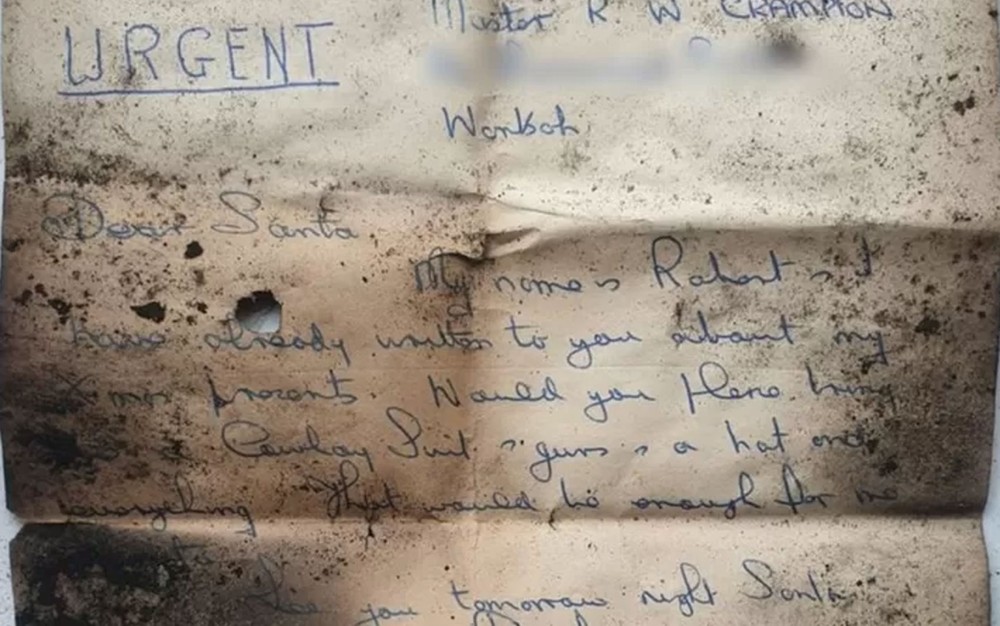 Master R W CRAMPTON
URGENT
Worksop
Dear Santa
My name is Robert & I
have already written to you about my
X mas presents. Would you please bring
a Cowboy Suit & guns & a hat and
everything that would be enough for me
See you tomorrow night Santa